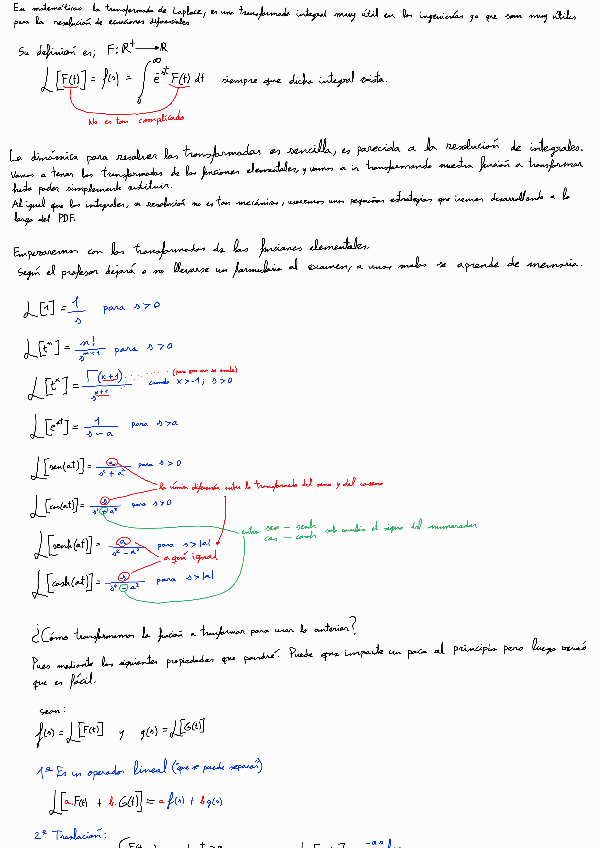 En matemáticas la transformada de Laplace, es una transformada integral muy útil en las ingenierías ya que son muy útiles
para la resolución de ecuaciones diferenciales
Su definición es; F: R⁺ → R
L[F(t)] = f(s) = ∫₀^∞ e^-st F(t) dt siempre que dicha integral exista.
No es tan complicado
La dinámica para resolver las transformadas es sencilla, es parecida a la resolución de integrales.
Vamos a tener las transformadas de las funciones elementales, y vamos a ir transformando nuestra función a transformar
hasta poder simplemente sustituir.
Al igual que las integrales, su resolución no es tan mecánica, usaremos unas pequeñas estrategias que iremos desarrollando a lo
largo del PDF.
Empezaremos con las transformadas de las funciones elementales.
Según el profesor dejará o no llevarse un formulario al examen, a unas malas se aprende de memoria.
L[1] = 1/s para s>0
L[tⁿ] = n!/sⁿ⁺¹ para s>0
L[tˣ] = Γ(x+1)/sˣ⁺¹ cuando x>-1; s>0
(para que no se anule)
L[e^at] = 1/(s-a) para s>a
L[sen(at)] = a/(s²+a²) para s>0
la única diferencia entre la transformada del seno y del coseno
L[cos(at)] = s/(s²+a²) para s>0
entre sen – senh
cos – cosh solo cambia el signo del numerador
L[senh(at)] = a/(s²-a²) para s>|a|
aquí igual
L[cosh(at)] = s/(s²-a²) para s>|a|
¿Cómo transformamos la función a transformar para usar lo anterior?
Pues mediante las siguientes propiedades que pondré. Puede que impacte un poco al principio pero luego veréis
que es fácil.
sean:
f(s) = L[F(t)] y g(s) = L[G(t)]
1ª Es un operador lineal (que se puede separar)
L[a.F(t) + b.G(t)] = a f(s) + b g(s)
2ª Traslación: